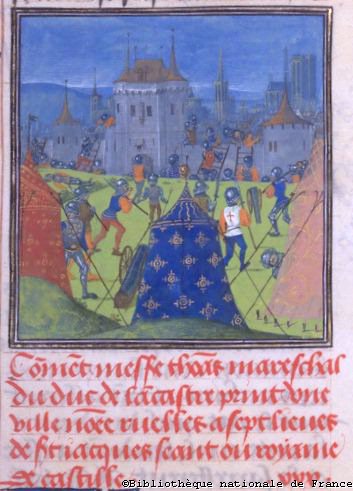 Com̄et messe thoās mareschal
du duc de lācastre print une
ville nōee ruelles a sept lieues
de s't iacques seant ou royāme
de castille
©Bibliothèque nationale de France